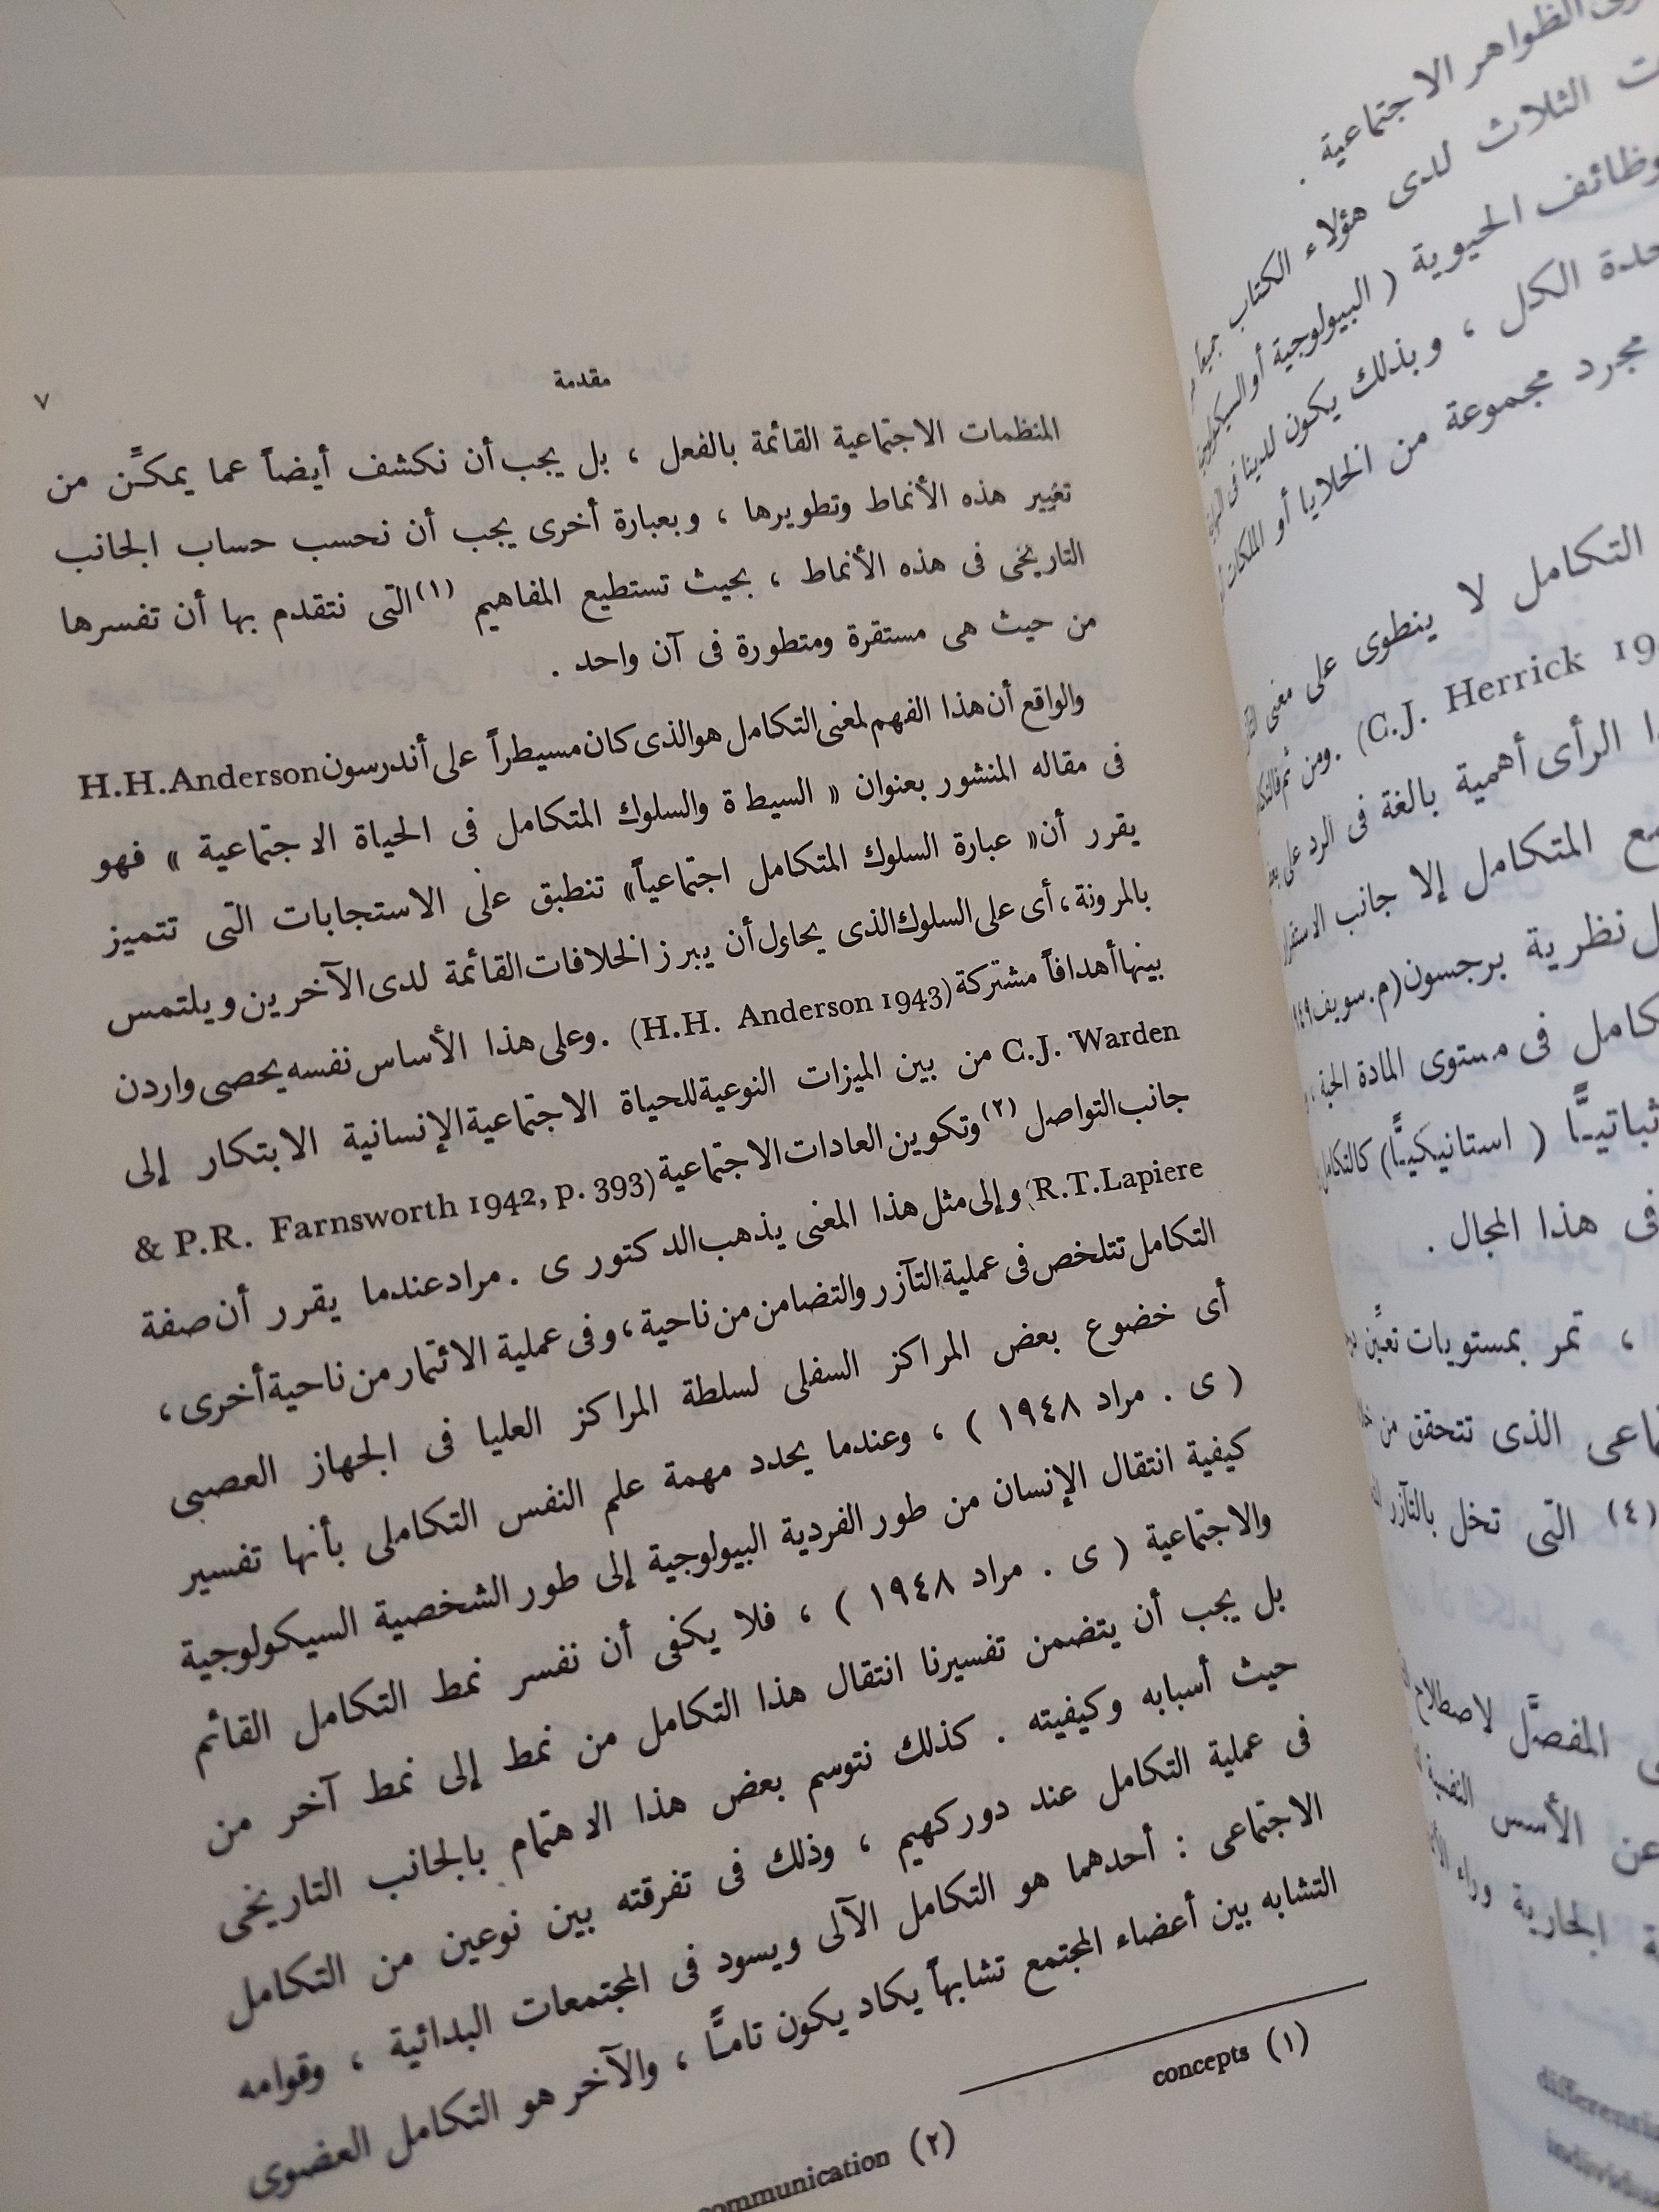 الظواهر الاجتماعية .
الثلاث لدى هؤلاء الكتاب جميعاً
وظائف الحيوية ( البيولوجية أو
الكل ، وبذلك يكون لدينا فى
مجرد مجموعة من الخلايا أو الملكات
التكامل لا ينطوى على معنى
(C.J. Herrick 19 . ومن ثم
الرأى أهمية بالغة فى الرد على
المتكامل إلا جانب الاستقرار
نظرية برجسون (م. سويف
فى مستوى المادة الحية ،
ثباتيًّا ( استاتيكيًّا) كالتكامل
فى هذا المجال .
، تمر بمستويات
الذى تتحقق من
(٤) التى تخل بالتآزر
المفصَّل لاصطلاح
عن الأسس النفسية
الجارية وراء
مقدمة
٧
المنظمات الاجتماعية القائمة بالفعل ، بل يجب أن نكشف أيضاً عما يمكِّن من
تغيير هذه الأنماط وتطويرها ، وبعبارة أخرى يجب أن نحسب حساب الجانب
التاريخى فى هذه الأنماط ، بحيث تستطيع المفاهيم (١) التى نتقدم بها أن تفسرها
من حيث هى مستقرة ومتطورة فى آن واحد .
والواقع أن هذا الفهم لمعنى التكامل هو الذى كان مسيطراً على أندرسون H.H.Anderson
فى مقاله المنشور بعنوان « السيطرة والسلوك المتكامل فى الحياة الاجتماعية » فهو
يقرر أن « عبارة السلوك المتكامل اجتماعياً » تنطبق على الاستجابات التى تتميز
بالمرونة ، أى على السلوك الذى يحاول أن يبرز الخلافات القائمة لدى الآخرين ويلتمس
بينها أهدافاً مشتركة (H.H. Anderson 1943) . وعلى هذا الأساس نفسه يحصى واردن
C.J. Warden من بين الميزات النوعية للحياة الاجتماعية الإنسانية الابتكار إلى
جانب التواصل (٢) وتكوين العادات الاجتماعية (& P.R. Farnsworth 1942, p. 393
R.T.Lapiere) وإلى مثل هذا المعنى يذهب الدكتور ى . مراد عندما يقرر أن صفة
التكامل تتلخص فى عملية التآزر والتضامن من ناحية ، وفى عملية الائتمار من ناحية أخرى ،
أى خضوع بعض المراكز السفلى لسلطة المراكز العليا فى الجهاز العصبى
( ى . مراد ١٩٤٨ ) ، وعندما يحدد مهمة علم النفس التكاملى بأنها تفسير
كيفية انتقال الإنسان من طور الفردية البيولوجية إلى طور الشخصية السيكولوجية
والاجتماعية ( ى . مراد ١٩٤٨ ) ، فلا يكفى أن نفسر نمط التكامل القائم
بل يجب أن يتضمن تفسيرنا انتقال هذا التكامل من نمط إلى نمط آخر من
حيث أسبابه وكيفيته . كذلك نتوسم بعض هذا الاهتمام بالجانب التاريخى
فى عملية التكامل عند دوركهيم ، وذلك فى تفرقته بين نوعين من التكامل
الاجتماعى : أحدهما هو التكامل الآلى ويسود فى المجتمعات البدائية ، وقوامه
التشابه بين أعضاء المجتمع تشابهاً يكاد يكون تامًّا ، والآخر هو التكامل العضوى
(١) concepts
(٢) communication